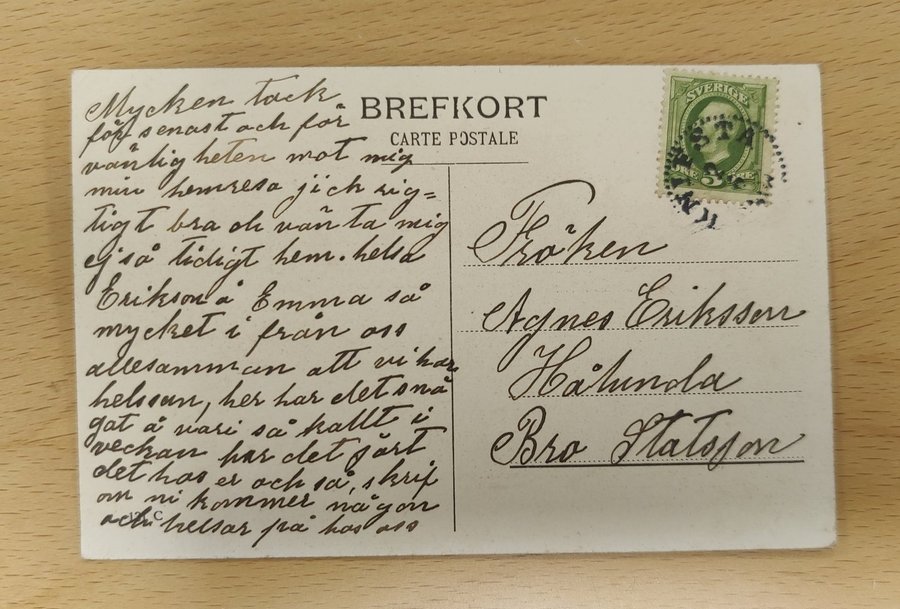 Mycken tack
för senast och för
vänligheten mot mig
min hemresa jick rig=
tigt bra och vän ta mig
ej så tidigt hem. helsa
Erikson å Emma så
mycket i från oss
allesamman att vi har
helsan, her har det snå
gat å vari så kallt i
veckan har det jört
det hos er och så, skrif
om ni kommer någon
och helsar på hos oss
BREFKORT
CARTE POSTALE
SVERIGE
3
ÖRE
KNIFSTA
Fröken
Agnes Eriksson
Håtunda
Bro Statsjon